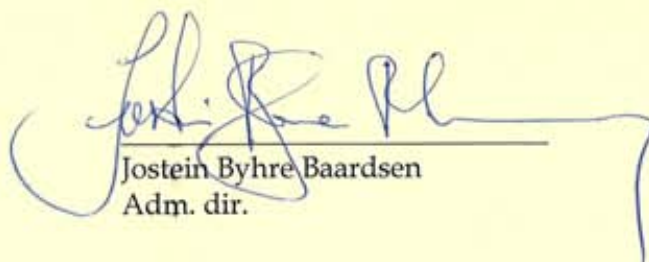 Jostein Byhre Baardsen
Adm. dir.